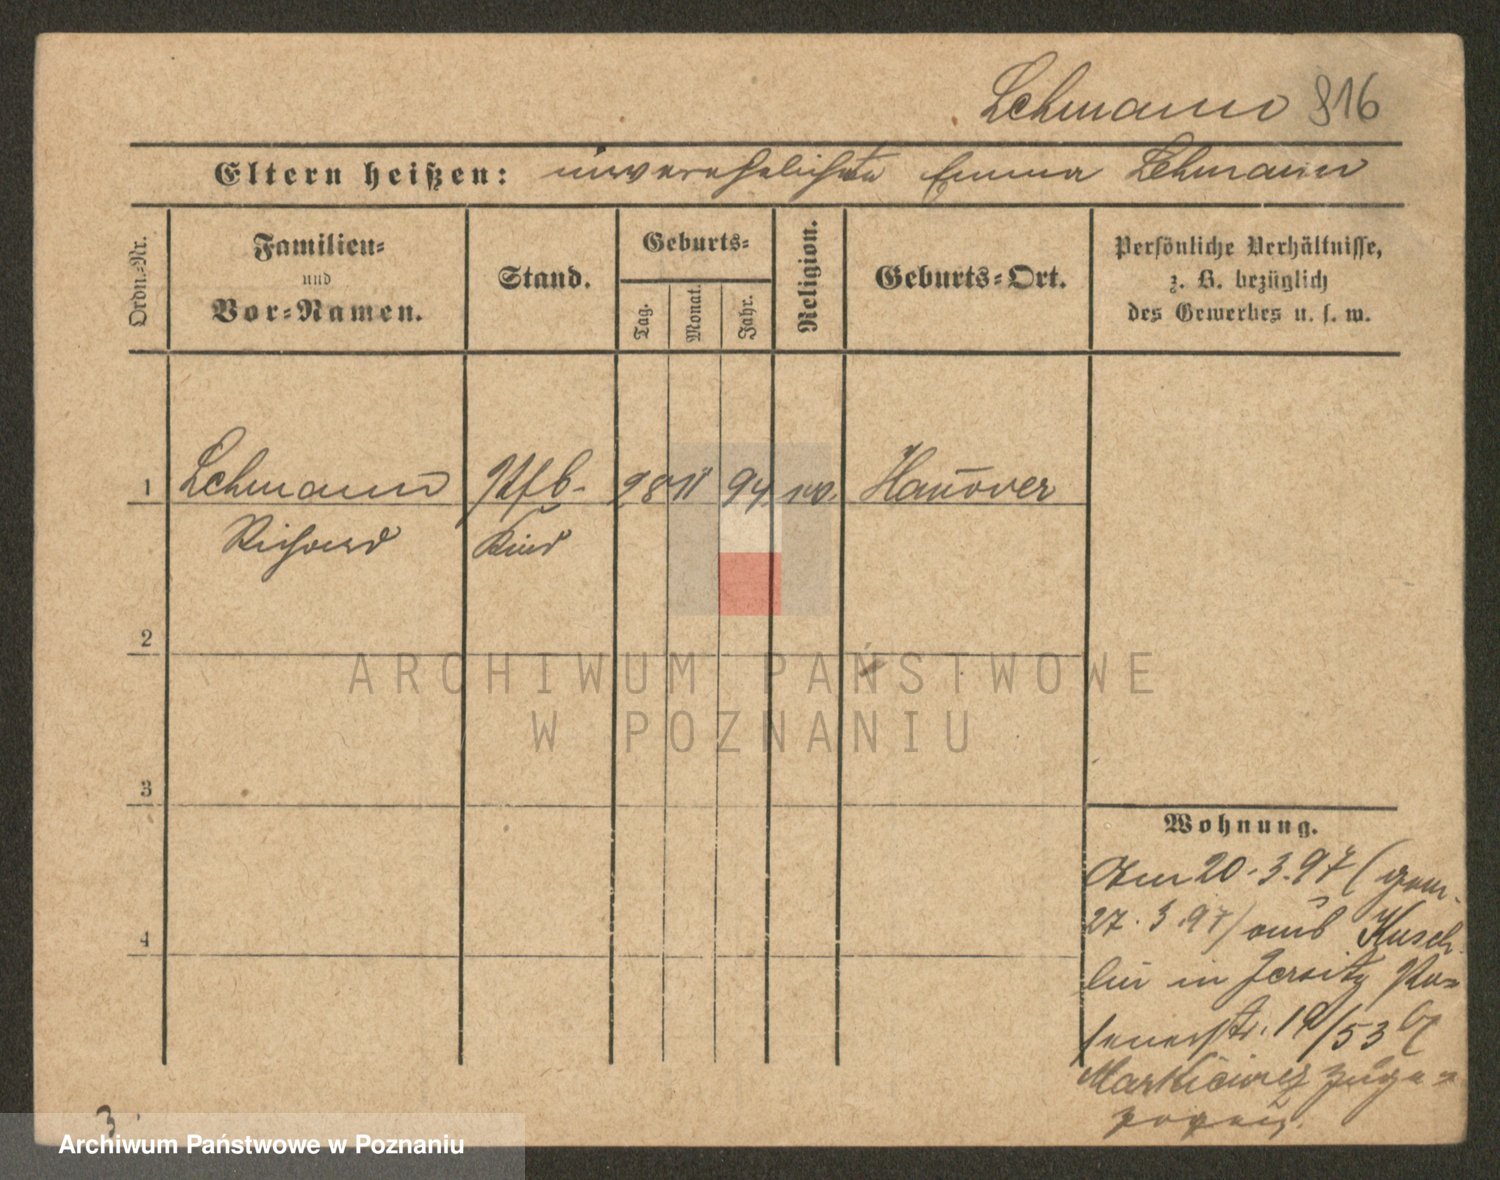 Lehmann 816
Eltern heißen: unverehelichte Emma Lehmann
Ordn.-Nr.
Familien-
und
Vor-Namen.
Stand.
Geburts-
Tag.
Monat.
Jahr.
Religion.
Geburts-Ort.
Persönliche Verhältnisse,
z. B. bezüglich
des Gewerbes u. s. w.
1 Lehmann Pfb- 28 11 94 Hanover
Richard Kind
2
3
4
Wohnung.
Am 20.3.97 (gem.
27.3.97) aus Kusch-
lin in Jersitz Po-
senerstr. 19/53 b/
Markiewicz zuge-
zogen.
3.
ARCHIWUM PAŃSTWOWE
W POZNANIU
Archiwum Państwowe w Poznaniu